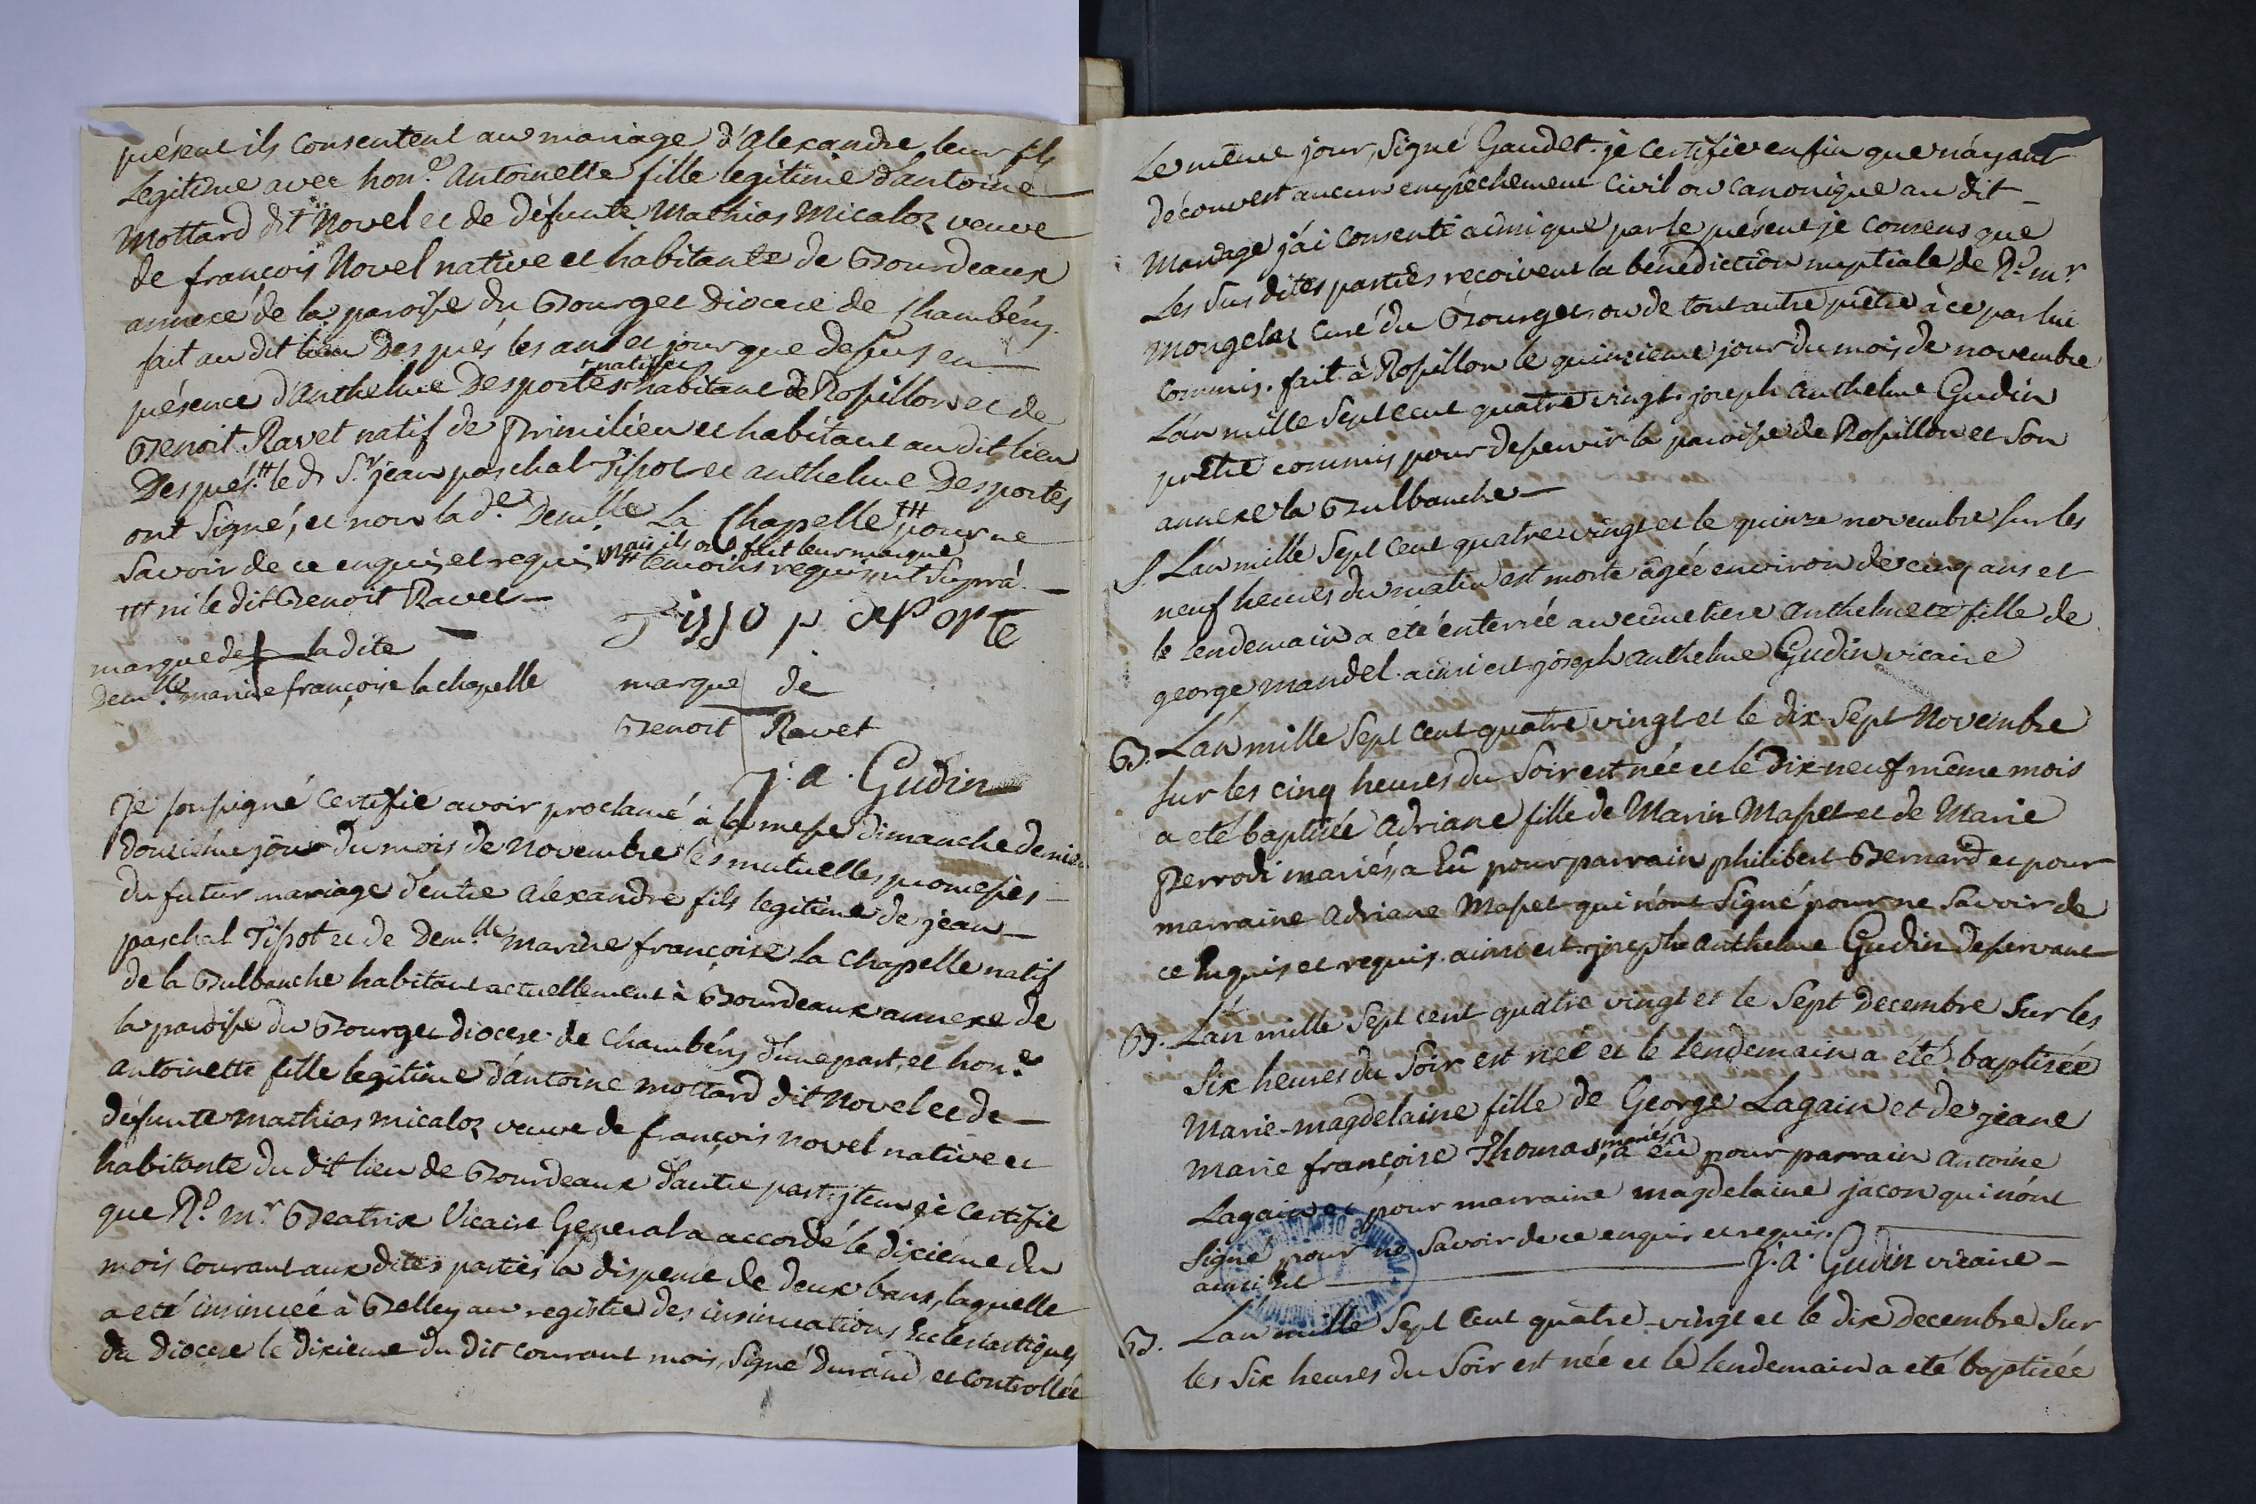 présent ils consentent au mariage d'alexandre leur fils
Legitime avec hon.e Antoinette fille legitime d'antoine
Mottard dit Novel et de défunte Mathias Micaloz veuve
de françois Novel native et habitante de Bourdeaux
annexe de la paroisse du Bourget Diocese de Chambéry.
fait au dit lieu Des prés les an et jour que dessus en
présence d'anthelme Desportes + natif et habitant de Rossillon et de
Benoit Ravet natif de Primilieu et habitant au dit lieu
Des prés. ++ le d. Sr. jean paschal Tissot et anthelme Desportes
ont signé, et non la d.e Dem.lle La Chapelle +++ pour ne
Savoir de ce enquis et requis mais ils ont fait leur marque
++ temoins requis, ut Suprá.
+++ ni le dit Benoit Ravet
Tisso p deporte
marque de la dite
Dem.lle marine françoise la chapelle
marque de
Benoit Ravet
j. a. Gudin
Je soussigné certifie avoir proclamé à la messe dimanche dernier
douzième jour du mois de Novembre les mutuelles promesses
du futur mariage d'entre alexandre fils legitime de jean
paschal Tissot et de Dem.lle marine françoise la chapelle natif
de la Bulbanche habitant actuellement à Bourdeaux annexe de
la paroisse du Bourget diocese de Chambéry d'une part, et hon.e
antoinette fille legitime d'antoine mottard dit Novel et de
defunte Mathias micaloz veuve de françois Novel native et
habitante du dit lieu de Bourdeaux d'autre part. jtem je certifie
que R.d mr. Beatrix Vicaire General a accordé le dixieme du
mois courant aux dites parties la dispense de deux bans, laquelle
a eté insinuée à Belley au registre des insinuations Eclesiastiques
du Diocese le dixieme du dit courant mois, signé Durand et controllée
Le même jour, signé Gaudet. je certifie enfin que n'ayant
découvert aucun empêchement civil ou canonique au dit
Mariage j'ai consenti ainsi que par le présent je consens que
Les sus dites parties reçoivent la bénédiction nuptiale de R.d mr.
Mongelaz Curé du Bourget, ou de tout autre prêtre à ce par lui
commis. fait à Rossillon le quinzieme jour du mois de novembre
L'an mille Sept cent quatre vingt. joseph anthelme Gudin
prêtre commis pour desservir la paroisse de Rossillon et son
annexe la Bulbanche
S. L'an mille Sept cent quatre vingt et le quinze novembre sur les
neuf heures du matin est morte âgée environ de cinq ans et
le lendemain a eté enterrée au cimetiere anthelmete fille de
george mandel. ainsi est joseph anthelme Gudin vicaire
B. L'an mille Sept cent quatre vingt et le dix-Sept Novembre
sur les cinq heures du Soir est née et le dix-neuf même mois
a eté baptisée Adriane fille de Marin Masset et de Marie
Perrodi mariés, a Eû pour parrain philibert Bernard et pour
marraine Adriane Masset qui n'ont Signé pour ne savoir de
ce Enquis et requis. ainsi est joseph anthelme Gudin desservant
B. L'an mille Sept cent quatre vingt et le Sept decembre Sur les
Six heures du Soir est née et le lendemain a été baptisée
Marie-magdelaine fille de George Lagain et de jeane
Marie françoise Thomas, mariés a eû pour parrain antoine
Lagain et pour marraine magdelaine jacon qui n'ont
Signé pour ne Savoir de ce enquis et requis.
ainsi Est J. a. Gudin vicaire
B. L'an mille Sept Cent quatre-vingt et le dix Decembre Sur
les Six heures du Soir est née et le lendemain a eté baptisée